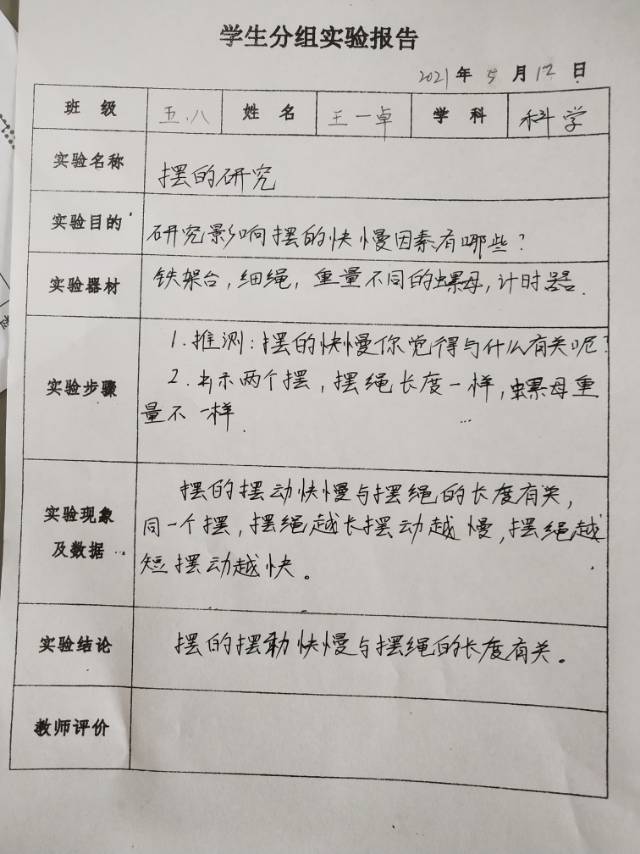 学生分组实验报告
2021年5月12日
班级 五.八 姓名 王一卓 学科 科学
实验名称 摆的研究
实验目的 研究影响摆的快慢因素有哪些?
实验器材 铁架台,细绳,重量不同的螺母,计时器.
1.推测:摆的快慢你觉得与什么有关呢?
实验步骤 2. 两个摆,摆绳长度一样,螺母重
量不一样
摆的摆动快慢与摆绳的长度有关,
实验现象 同一个摆,摆绳越长摆动越慢,摆绳越
及数据 短摆动越快。
实验结论 摆的摆动快慢与摆绳的长度有关。
教师评价